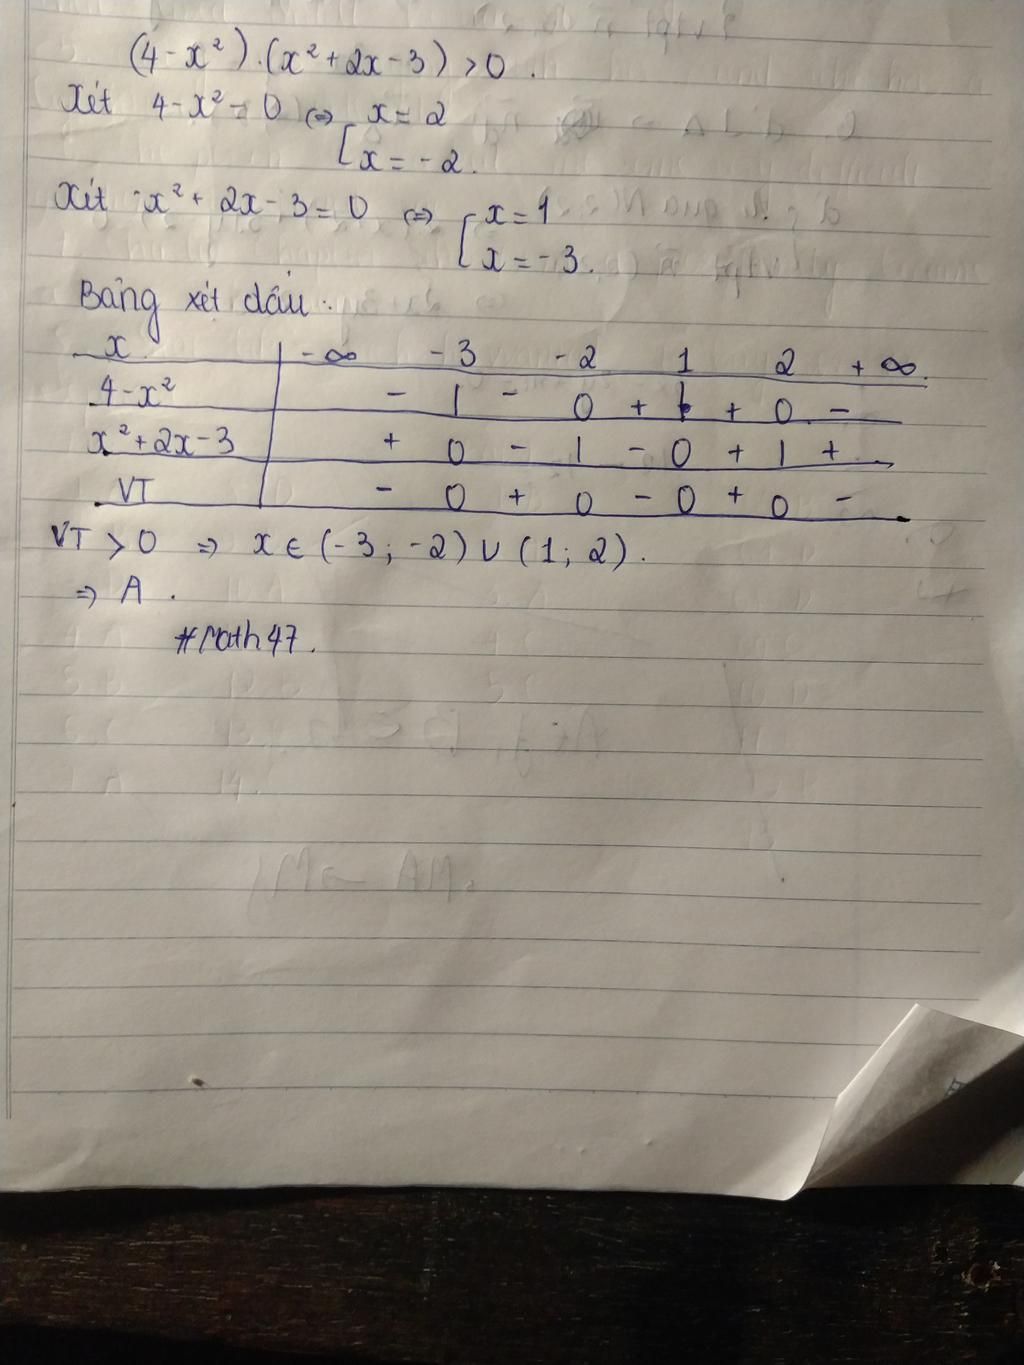 (4-x²).(x²+2x-3)>0.
Xét 4-x²=0 ⇔ [x=2
[x=-2.
Xét x²+2x-3=0 ⇔ [x=1
[x=-3.
Bảng xét dấu:
x | -∞ -3 -2 1 2 +∞
4-x² | - | - 0 + | + 0 -
x²+2x-3 | + 0 - | - 0 + | +
VT | - 0 + 0 - 0 + 0 -
VT > 0 ⇒ x ∈ (-3; -2) ∪ (1; 2).
⇒ A.
#Math47.